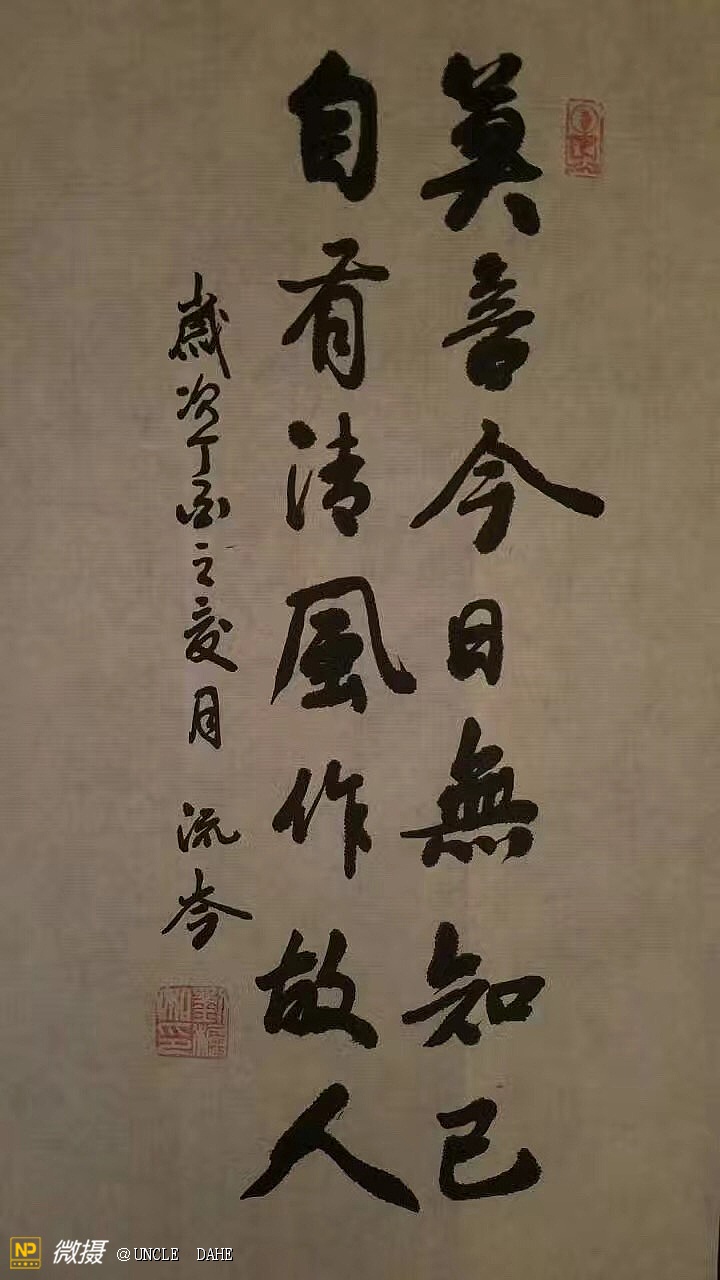 莫音今日無知己
自有清風作故人
歲次丁酉之夏月 流岑
NP 微摄 @UNCLE DAHE